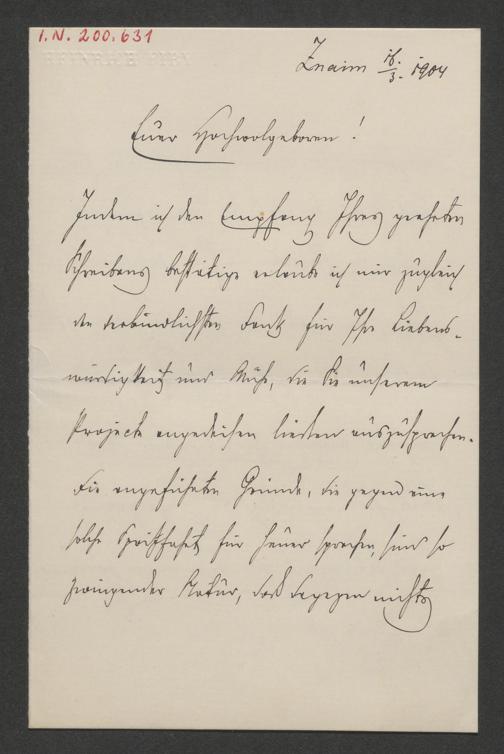 I.N. 200.631
Znaim 16./3. 1904
Euer Hochwolgeboren!
Indem ich den Empfang Ihres geehrten
Schreibens bestätige erlaube ich mir zugleich
den verbindlichsten Dank für Ihre Liebens-
würdigkeit und Mühe, die Sie unserem
Projecte angedeihen ließen auszusprechen.
Die angeführten Gründe, die gegen eine
solche für heuer sprechen, sind so
zwingender Natur, daß dagegen nichts